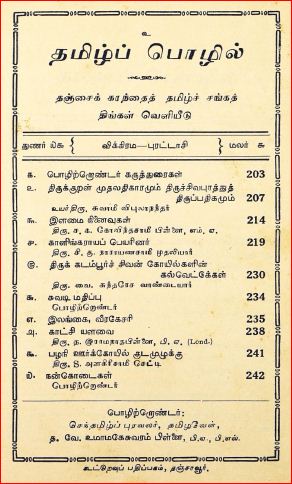 உ
தமிழ்ப் பொழில்
தஞ்சைக் கரந்தைத் தமிழ்ச் சங்கத்
திங்கள் வெளியீடு
துணர் ௰௬ } விக்கிரம—புரட்டாசி { மலர் ௬
௧. பொழிற்றொண்டர் கருத்துரைகள் 203
௨. திருக்குறள் முதலதிகாரமும் திருச்சிவபுரத்துத்
திருப்பதிகமும் 207
உயர்திரு, சுவாமி விபுலாநந்தர்
௩. இளமை நினைவுகள் 214
திரு, ச. க. கோவிந்தசாமி பிள்ளை, எம், ஏ,
௪. காளிங்கராயப் பெயரினர் 219
திரு, சி, கு. நாராயணசாமி முதலியார்
௫. திருக் கடம்பூர்ச் சிவன் கோயில்களின்
கல்வெட்டுகள் 230
திரு, வை. சுந்தரேச வாண்டையார்
௬. சுவடி மதிப்பு 234
பொழிற்றொண்டர்
௭. இலங்கை, வீரகேசரி 235
௮. காட்சி யளவை 238
திரு, த. இராமநாதபிள்ளை, பி, ஏ, (Lond.)
௯. பழநி ஊர்க்கோயில் குடமுழுக்கு 241
திரு, S. அளகிரிசாமி செட்டி
௰. நன்கொடைகள் 242
பொழிற்றொண்டர்
பொழிற்றொண்டர்:
செந்தமிழ்ப் புரவலர், தமிழவேள்,
த. வே. உமாமகேசுவரம் பிள்ளை, பி.ஏ., பி.எல்.
கூட்டுறவுப் பதிப்பகம், தஞ்சாவூர்.